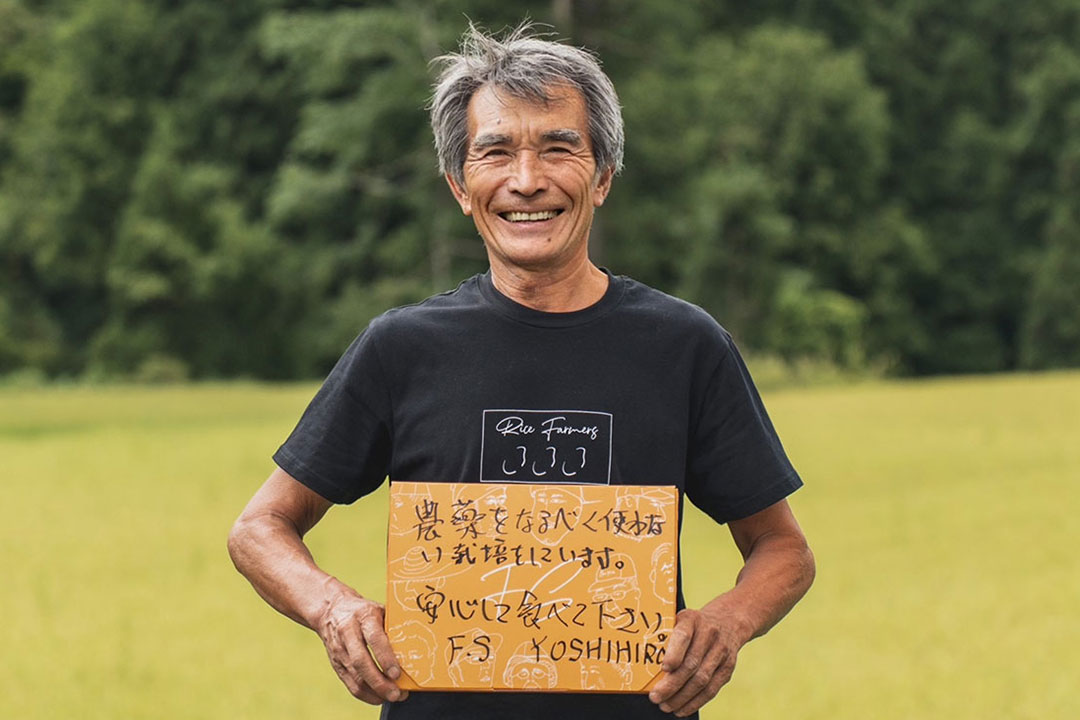 Rice Farmers
農薬をなるべく使わな
い栽培をしています。
安心して食べて下さい。
F.S YOSHIHIRO